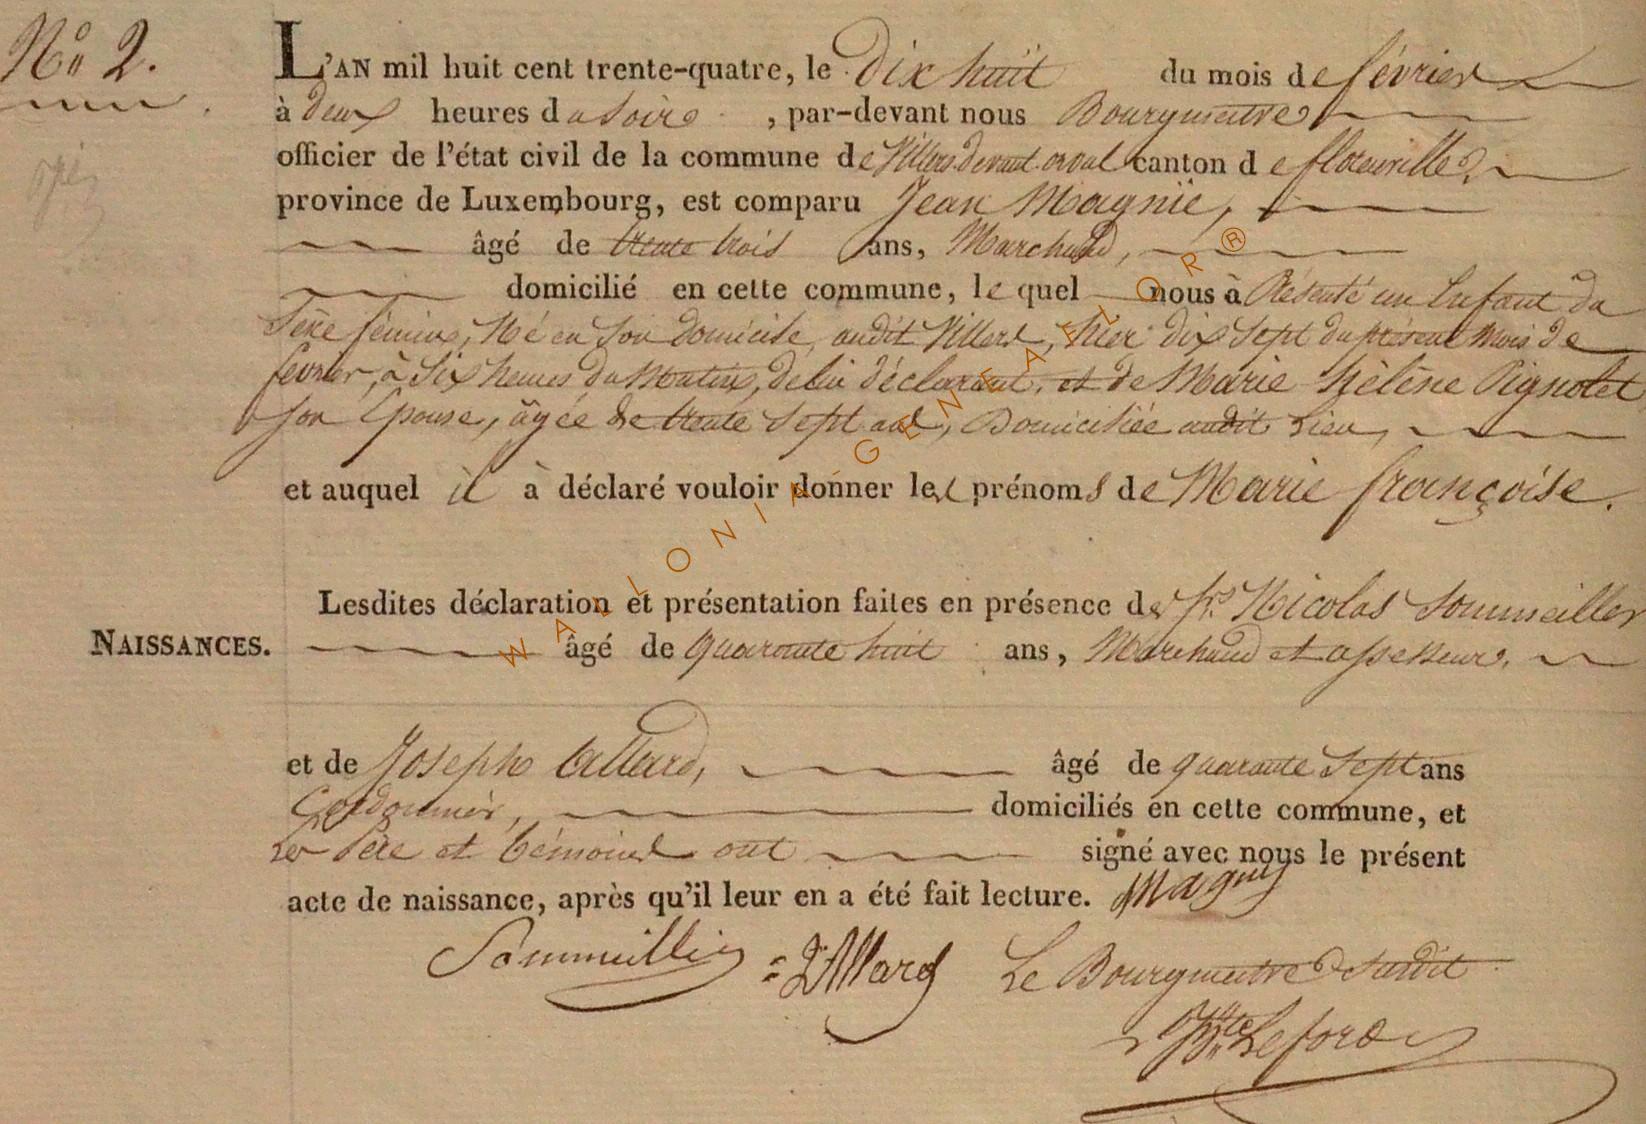 Nº 2.
L'AN mil huit cent trente-quatre, le dix huit du mois de février
à deux heures du soire, par-devant nous Bourgmestre
officier de l'état civil de la commune de Villers devant orval canton de florenville,
province de Luxembourg, est comparu Jean Magnié,
âgé de trente trois ans, Marchand,
domicilié en cette commune, le quel nous à Présenté un Enfant du
Sexe féminin, Né en son domicile audit Villers, hier dix Sept du présent mois de
fevrier, à Six heures du Matin, de lui déclarant, et de Marie Hélène Pignolet
son Epouse, âgée de trente Sept ans, Domiciliée audit Lieu,
et auquel il à déclaré vouloir donner les prénoms de Marie françoise.
Lesdites déclaration et présentation faites en présence de frs Nicolas Sommeiller
NAISSANCES.
âgé de quarante huit ans, Marchand et assesseur,
et de Joseph Allard, âgé de quarante Sept ans
Cordonnier, domiciliés en cette commune, et
Les Père et témoins ont signé avec nous le présent
acte de naissance, après qu'il leur en a été fait lecture. Magny
Sommeillier Allard Le Bourgmestre Susdit
Leford
WALLONIA GENEALOR ®